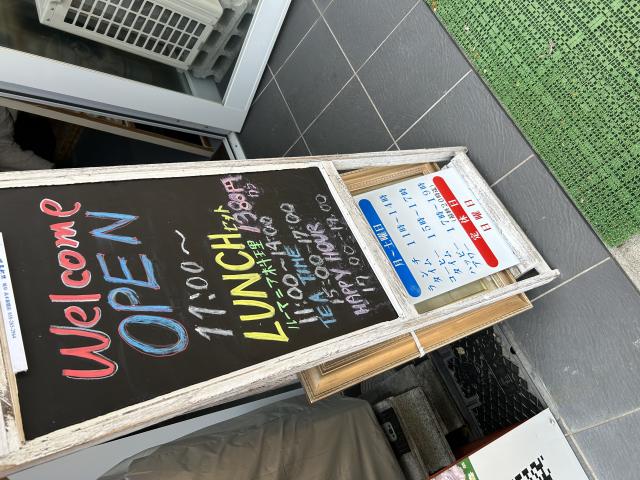 Welcome
OPEN
11:00~
LUNCHセット
ルーマニア料理 1380円
11:00~14:00
TEA TIME
15:00~17:00
HAPPY HOUR
17:00~19:00
月-土曜日
ランチ 11時-14時
コータイム 15時-17時
ハッピー 17時-19時
アワー
定休日 日曜日